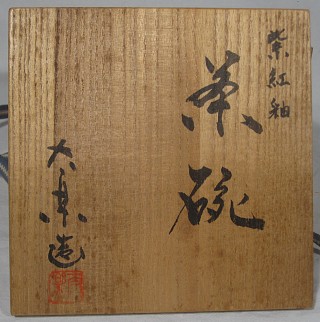 紫紅釉
茶碗
大東造